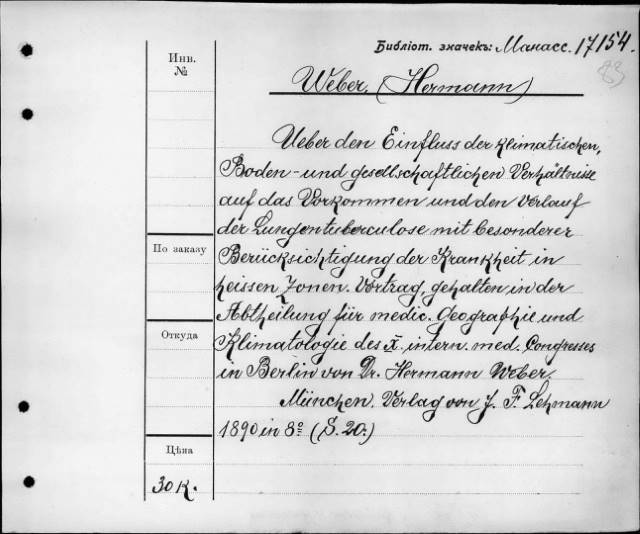 Библіот. значекъ: Манасс. 17154.
83
Инв.
№
Weber, (Hermann)
Ueber den Einfluss der klimatischen,
Boden- und gesellschaftlichen Verhältnisse
auf das Vorkommen und den Verlauf
der Lungentuberculose mit besonderer
По заказу
Berücksichtigung der Krankheit in
heissen Zonen. Vortrag, gehalten in der
Abtheilung für medic. Geographie und
Откуда
Klimatologie des X. intern. med. Congresses
in Berlin von Dr. Hermann Weber.
München. Verlag von J. F. Lehmann
1890 in 8º (S. 20.)
Цѣна
30 к.